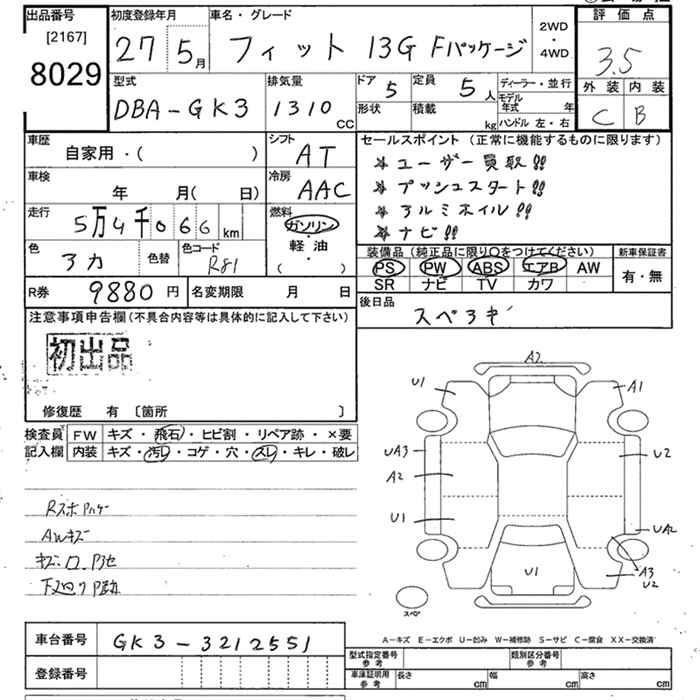 出品番号 初度登録年月 車名・グレード 評価点
[2167]
8029
27 5月 フィット 13G Fパッケージ 2WD・4WD 3.5
型式 排気量 ドア 定員 ディーラー・並行 外装 内装
DBA-GK3 1310 CC 5 5人 モデル年式 年 C B
形状 積載 kg ハンドル 左・右
車歴 シフト セールスポイント(正常に機能するものに限ります)
自家用・( ) AT ☆ユーザー買取!!
車検 冷房 ☆プッシュスタート!!
年 月( 日) AAC ☆アルミホイル!!
走行 燃料 ☆ナビ!!
5万4千066km ガソリン・軽油・( )
色 色替 色コード 装備品(純正品に限り○をつけてください) 新車保証書
アカ R81 PS PW ABS エアB AW 有・無
SR ナビ TV カワ
R券 9880円 名変期限 月 日 後日品
スペアキ
注意事項申告欄(不具合内容等は具体的に記入して下さい)
初出品
修復歴 有 〔箇所 〕
検査員記入欄 FW キズ・飛石・ヒビ割・リペア跡・×要
内装 キズ・汚レ・コゲ・穴・スレ・キレ・破レ
AWキズ
A2
U1 A1
UA3 U2
A2
U1 UA2
U1 A3
U2
スペア
A-キズ E-エクボ U-凹み W-補修跡 S-サビ C-腐食 XX-交換済
車台番号 GK3-3212551 型式指定番号 参考 類別区分番号 参考
登録番号 車庫証明用 参考 長さ cm 幅 cm 高さ cm